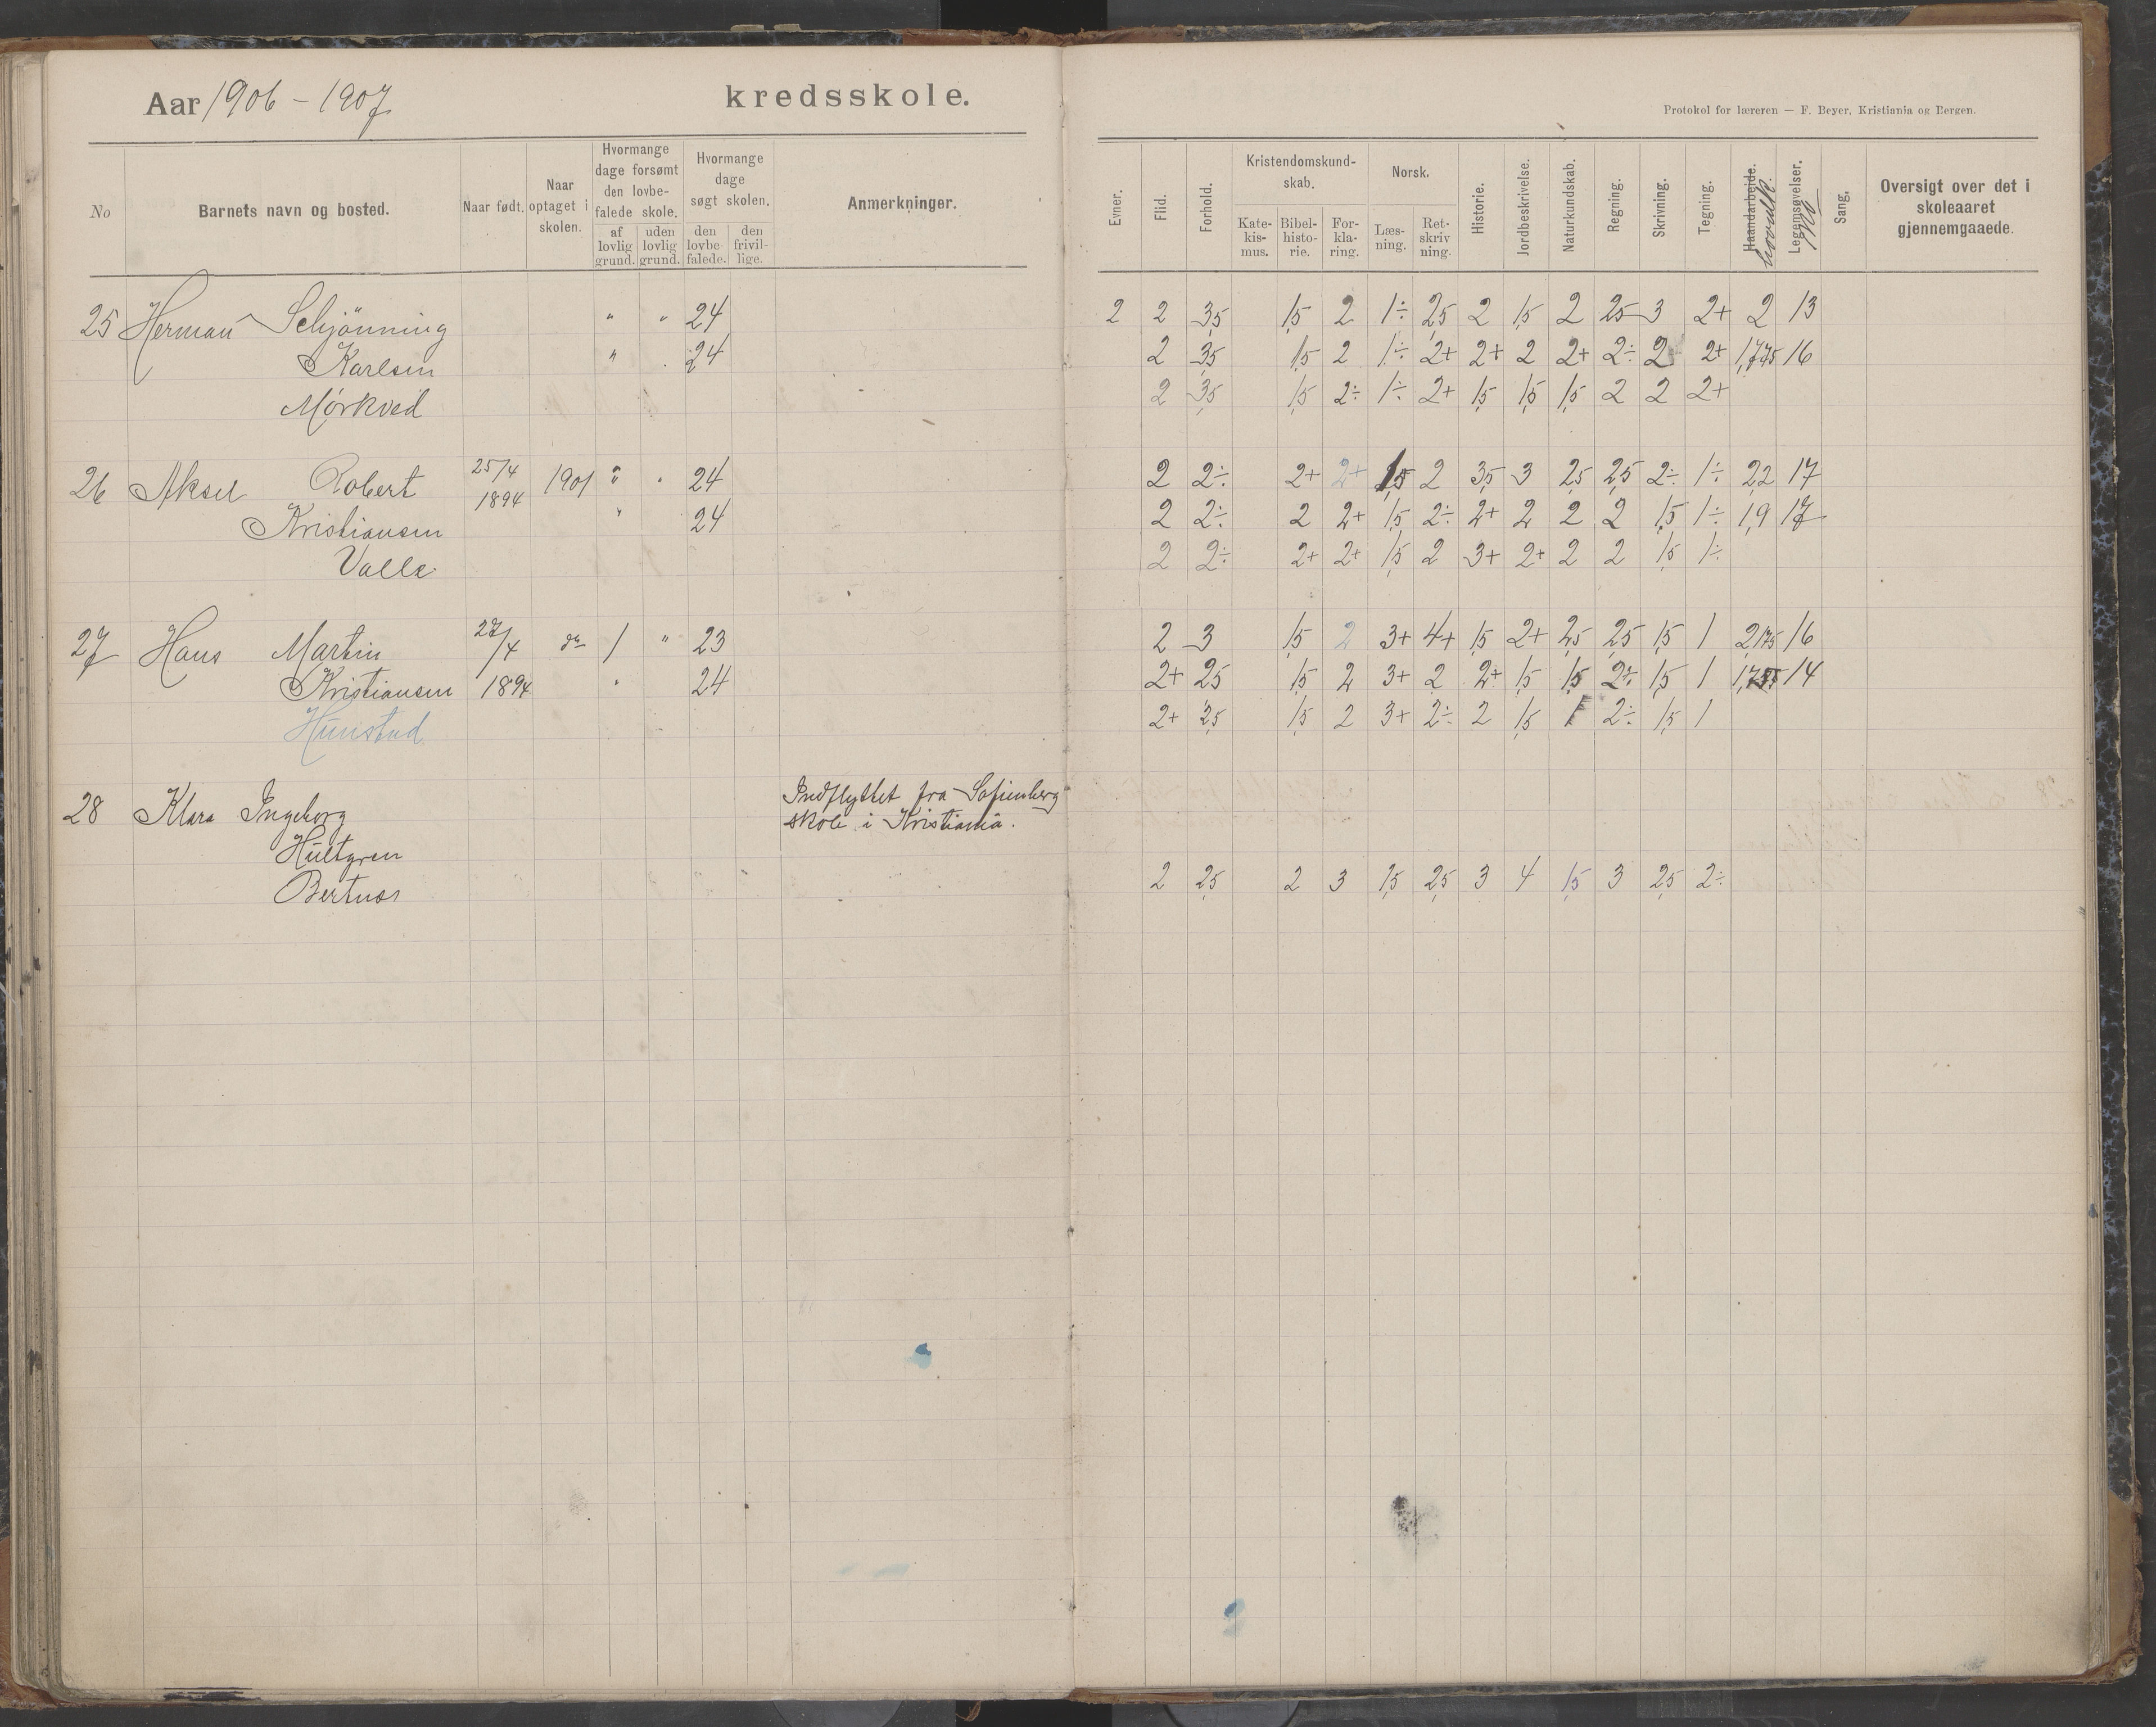 Aar 1906 - 1907 kredsskole.
Protokol for læreren — F. Beyer, Kristiania og Bergen.
No
Barnets navn og bosted.
Naar født.
Naar optaget i skolen.
Hvormange dage forsømt den lovbefalede skole.
af lovlig grund.
uden lovlig grund.
Hvormange dage søgt skolen.
den lovbefalede.
den frivillige.
Anmerkninger.
Evner.
Flid.
Forhold.
Kristendomskundskab.
Katekismus.
Bibelhistorie.
Forklaring.
Norsk.
Læsning.
Retskrivning.
Historie.
Jordbeskrivelse.
Naturkundskab.
Regning.
Skrivning.
Tegning.
Haandarbejde.
Legemsøvelser.
Sang.
Oversigt over det i skoleaaret gjennemgaaede.
25 Herman Schjönning " " 24 2 2 3,5 1,5 2 1÷ 2,5 2 1,5 2 2,5 3 2+ 2 13
Karlsen " 24 2 3,5 1,5 2 1÷ 2+ 2+ 2 2+ 2÷ 2 2+ 1,775 16
Mörkved 2 3,5 1,5 2÷ 1÷ 2+ 1,5 1,5 1,5 2 2 2+
26 Aksel Robert 25/4 1894 1901 " " 24 2 2÷ 2+ 2+ 1,5 2 3,5 3 2,5 2,5 2÷ 1÷ 2,2 17
Kristiansen " 24 2 2÷ 2 2+ 1,5 2÷ 2+ 2 2 2 1,5 1÷ 1,9 17
Valle 2 2÷ 2+ 2+ 1,5 2 3+ 2+ 2 2 1,5 1÷
27 Hans Martin 27/4 do 1 " 23 2 3 1,5 2 3+ 4+ 1,5 2+ 2,5 2,5 1,5 1 2,175 16
Kristiansen 1894 " 24 2+ 2,5 1,5 2 3+ 2 2+ 1,5 1,5 2÷ 1,5 1 14
Hunstad 2+ 2,5 1,5 2 3+ 2÷ 2 1,5 1 2÷ 1,5 1
28 Klara Ingeborg Indflyttet fra Sofienberg
skole i Kristiania.
Hultgren
Bertnes 2 2,5 2 3 1,5 2,5 3 4 1,5 3 2,5 2÷